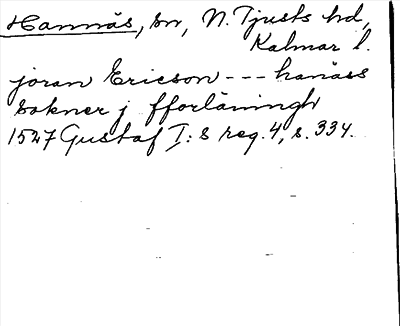 Hannäs, sn, N. Tjusts hd,
Kalmar l.
joran Ericson --- hanäss
sokner j fforläningh
1527 Gustaf I:s reg. 4, s. 334.